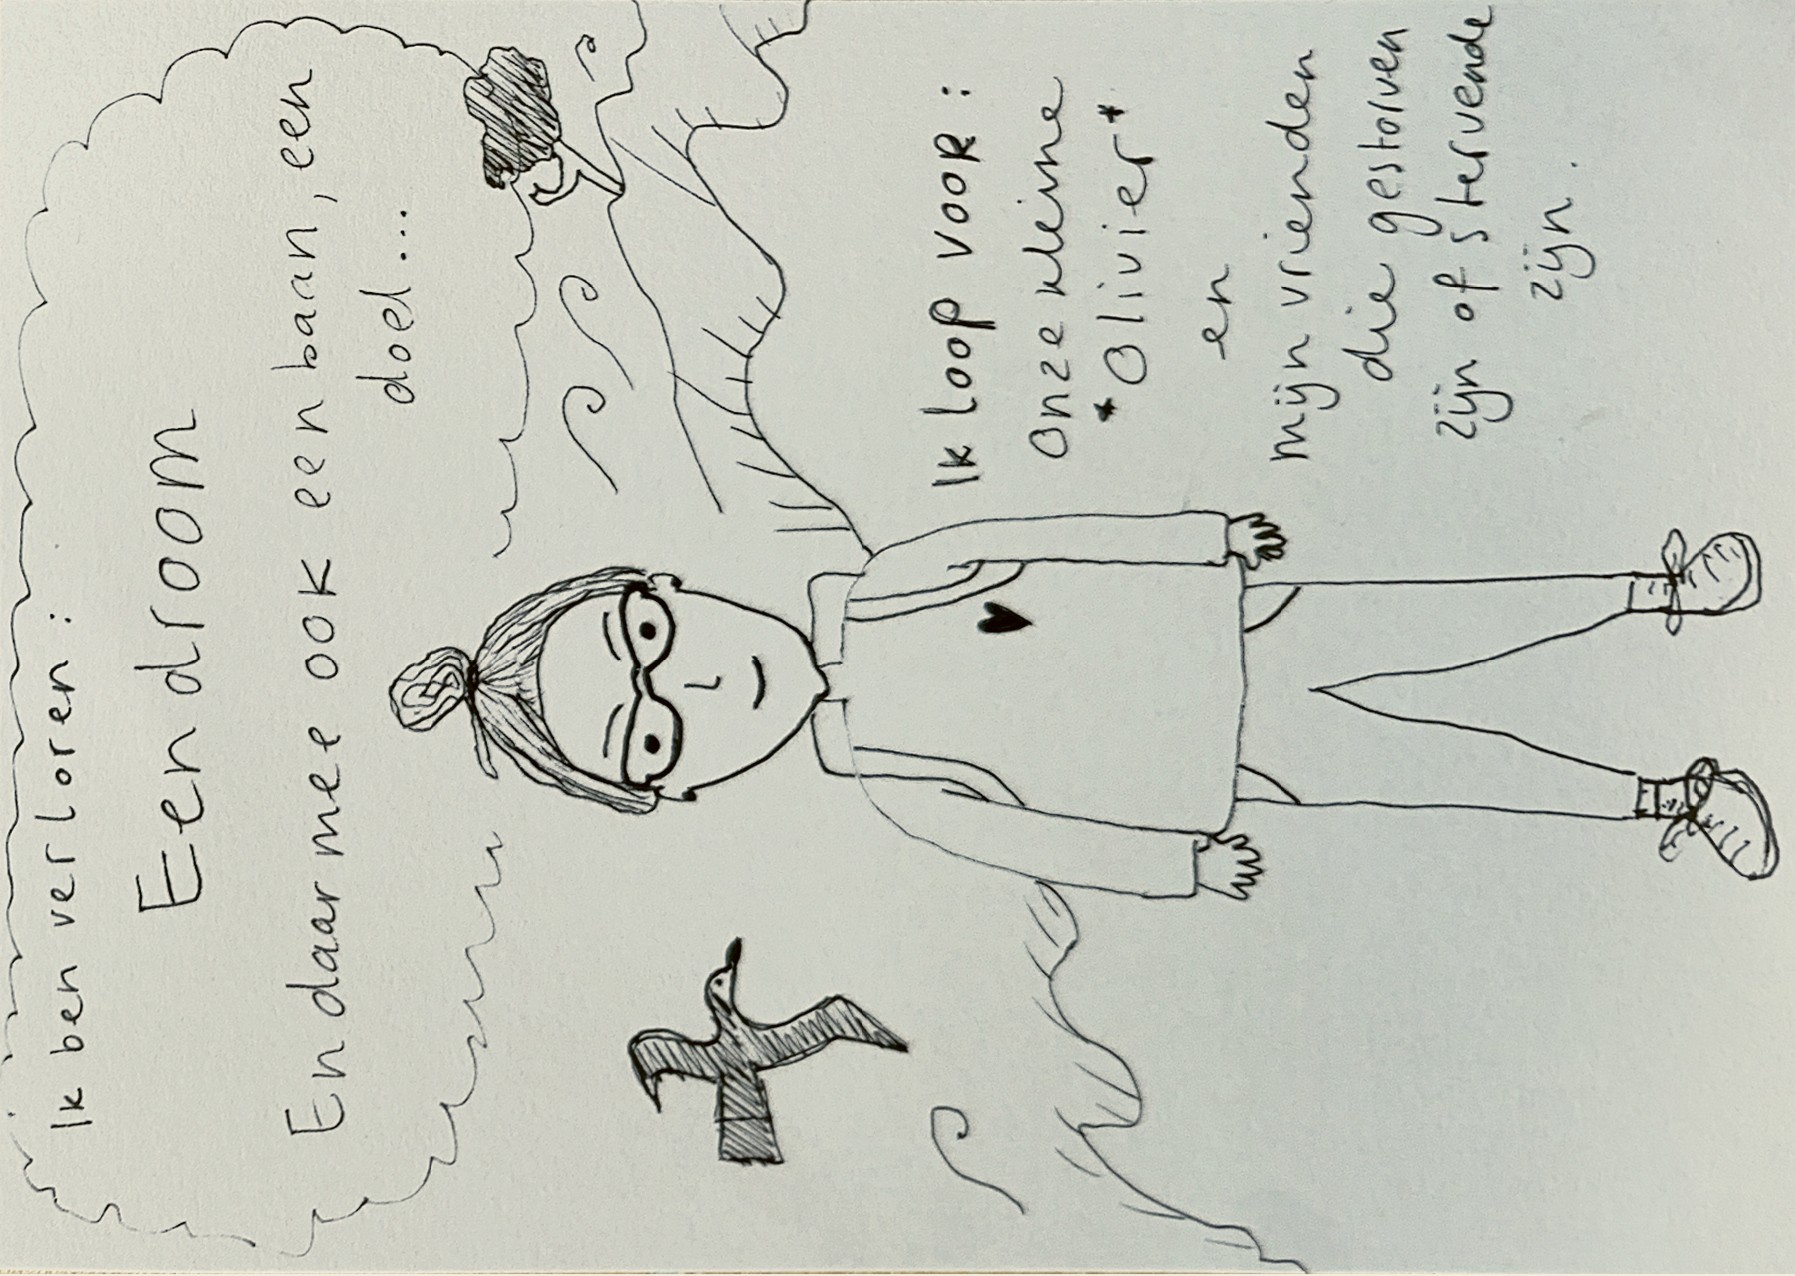 Ik ben verloren:
Een droom
En daarmee ook een baan, een
doel...
Ik loop voor:
Onze kleine
*Olivier*
en
mijn vrienden
die gestorven
zijn of stervende
zijn.